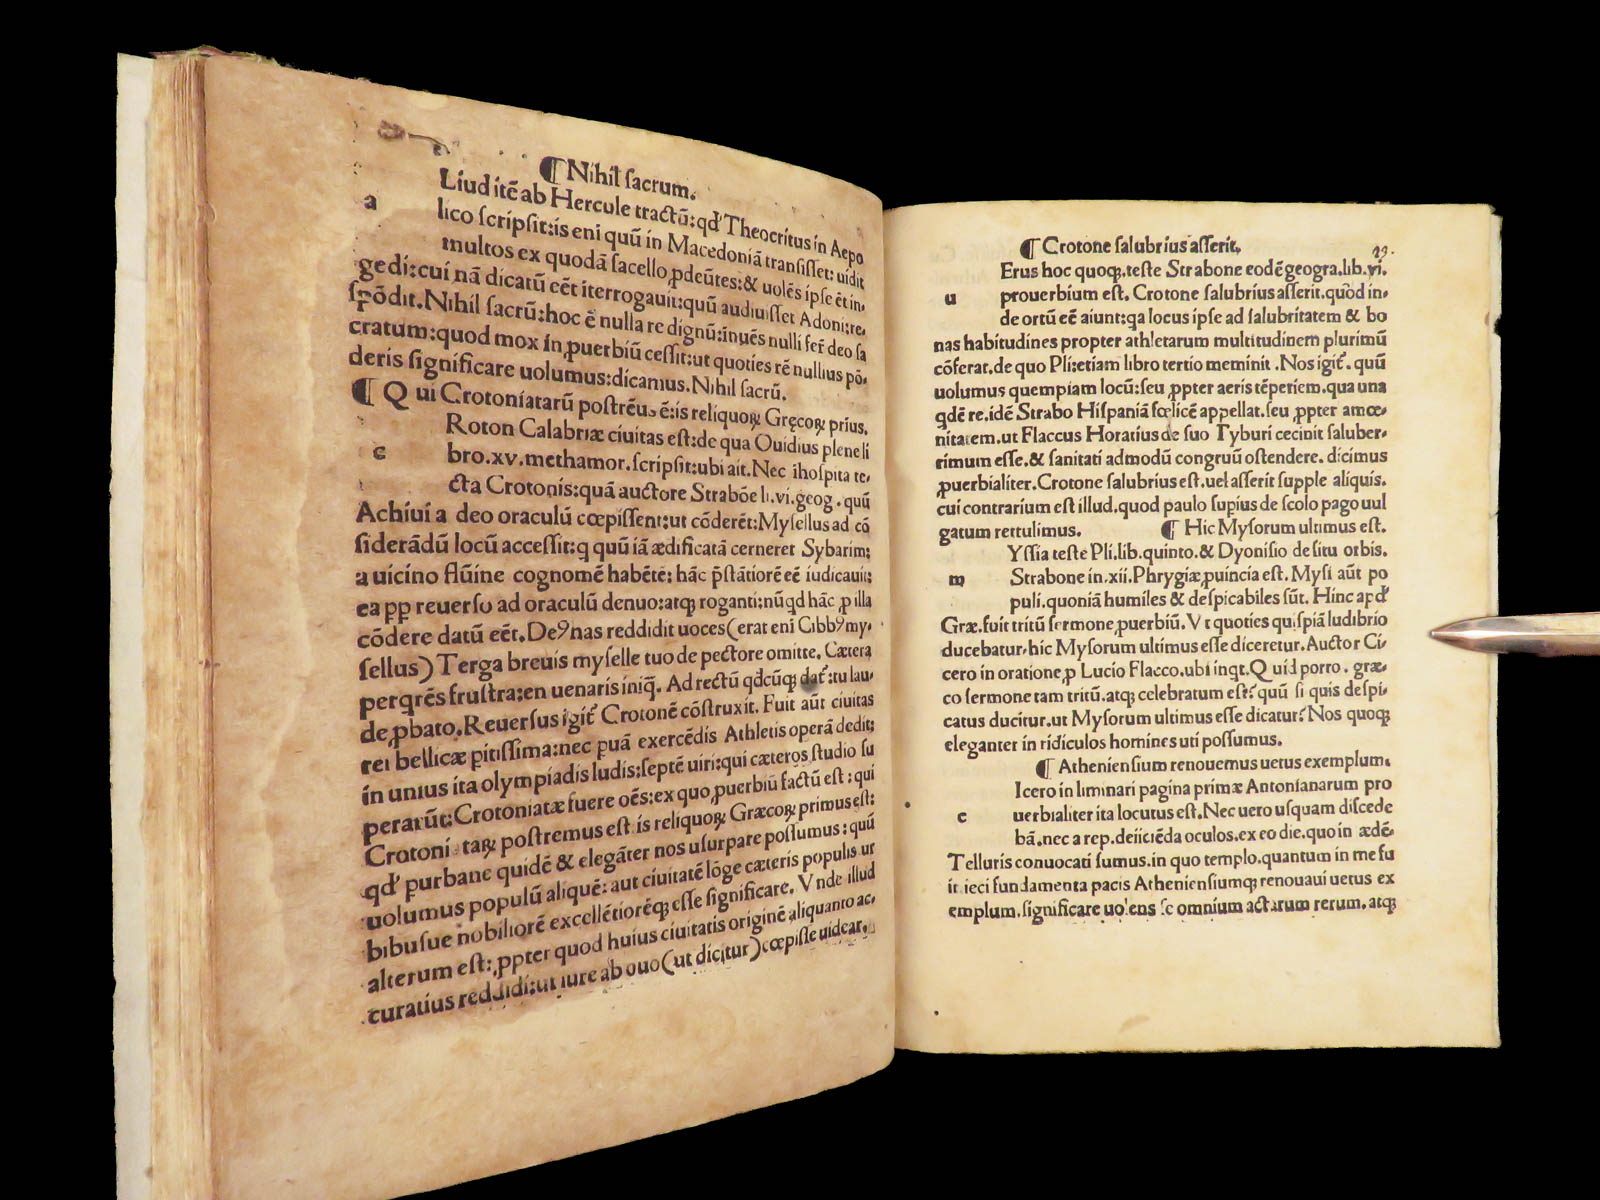 ¶ Nihil sacrum.
Liud itē ab Hercule tractū: qd' Theocritus in Aepo
a
lico scripsit: is eni quū in Macedoniā transisset: uidit
multos ex quodā sacello ꝓdeūtes: & uolēs ipse ēt in⸗
gedi: cui nā dicatū eēt iterrogauit: quū audiuisset Adoni: re⸗
spōdit. Nihil sacrū: hoc ē nulla re dignū: inuēs nulli fer̄ deo sa
cratum: quod mox in ꝓuerbiū cessit: ut quoties rē nullius pō⸗
deris significare uolumus: dicamus. Nihil sacrū.
¶ Qui Crotoniatarū postrēu⸗ ē: is reliquoꝝ Gręcoꝝ prius.
Roton Calabriæ ciuitas est: de qua Ouidius plene li
c
bro. xv. methamor. scripsit: ubi ait. Nec ihospita te⸗
cta Crotonis: quā auctore Strabōe li. vi. geog. quū
Achiui a deo oraculū cœpissent: ut cōderēt: Mysellus ad cō
siderādū locū accessit: q quū iā ædificatā cerneret Sybarim:
a uicino flūine cognomē habēte: hāc p̄stātiorē eē iudicauit:
ea ꝓp reuerso ad oraculū denuo: atqꝫ roganti: nūqd hāc ꝓ illa
cōdere datū eēt. Deꝰ nas reddidit uoces (erat eni Gibbꝰ my⸗
sellus) Terga breuis myselle tuo de pectore omitte. Cætera
perqrēs frustra: en uenaris iniq̄. Ad rectū qdcūqꝫ dat̄: tu lau⸗
de ꝓbato. Reuersus igit̄ Crotonē cōstruxit. Fuit aūt ciuitas
rei bellicæ pitissima: nec puā exercēdis Athletis operā dedit:
in unius ita olympiadis ludis: septē uiri: qui cæteros studio su
perarūt: Crotoniatæ fuere oēs: ex quo ꝓuerbiū factū est: qui
Crotoni taꝝ postremus est is reliquoꝝ Græcoꝝ primus est:
qd' purbane quidē & elegāter nos usurpare possumus: quū
uolumus populū aliquē: aut ciuitatē lōge cæteris populis ur
bibusue nobiliorē excellētiorēqꝫ esse significare. Vnde illud
alterum est: ꝓpter quod huius ciuitatis originē aliquanto ac⸗
curatius reddidi: ut iure ab ouo (ut dicitur) cœpisse uidear.
¶ Crotone salubrius asserit.
49.
Erus hoc quoqꝫ. teste Strabone eodē geogra. lib. vi.
u
prouerbium est. Crotone salubrius asserit. quod in⸗
de ortū eē aiunt: qa locus ipse ad salubritatem & bo
nas habitudines propter athletarum multitudinem plurimū
cōferat. de quo Pli: etiam libro tertio meminit. Nos igit̄. quū
uolumus quempiam locū: seu ꝓpter aeris tēperiem. qua una
qdē re. idē Strabo Hispaniā fœlicē appellat. seu ꝓpter amœ⸗
nitatem. ut Flaccus Horatius de suo Tyburi cecinit saluber⸗
rimum esse. & sanitati admodū congruū ostendere. dicimus
ꝓuerbialiter. Crotone salubrius est. uel asserit supple aliquis.
cui contrarium est illud. quod paulo supius de scolo pago uul
gatum rettulimus.
¶ Hic Mysorum ultimus est.
Yssia teste Pli. lib. quinto. & Dyonisio de situ orbis.
m
Strabone in. xii. Phrygiæ ꝓuincia est. Mysi aūt po
puli. quoniā humiles & despicabiles sūt. Hinc apd'
Græ. fuit tritū sermone ꝓuerbiū. Vt quoties quispiā ludibrio
ducebatur. hic Mysorum ultimus esse diceretur. Auctor Ci⸗
cero in oratione ꝓ Lucio Flacco. ubi inqt. Quid porro. græ⸗
co sermone tam tritū. atqꝫ celebratum est? quū si quis despi⸗
catus ducitur. ut Mysorum ultimus esse dicatur? Nos quoqꝫ
eleganter in ridiculos homines uti possumus.
¶ Atheniensium renouemus uetus exemplum.
Icero in liminari pagina primæ Antonianarum pro
c
uerbialiter ita locutus est. Nec uero usquam discede
bā. nec a rep. deiiciēda oculos. ex eo die. quo in ædē⸗
Telluris conuocati sumus. in quo templo. quantum in me fu
it. ieci fundamenta pacis Atheniensiumqꝫ renouaui uetus ex
emplum. significare uolens se omnium actarum rerum. atqꝫ